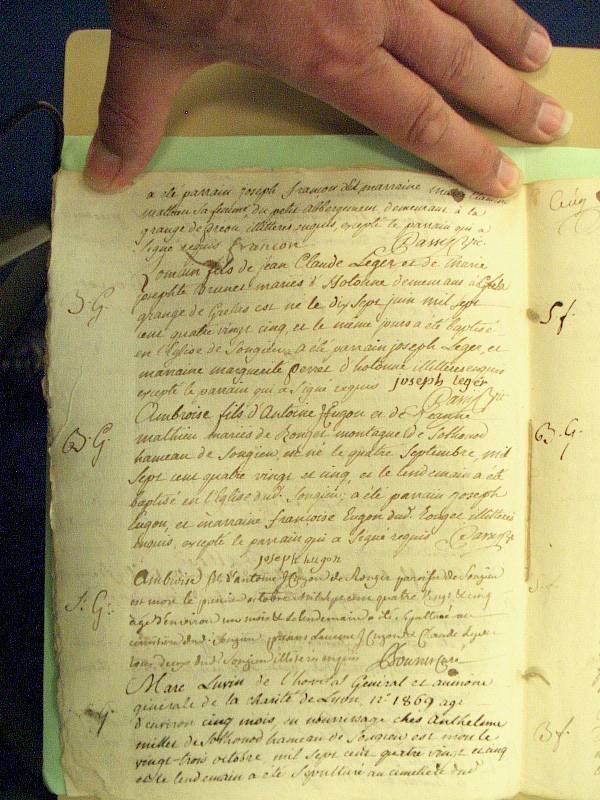 a été parrain joseph francon et marraine
mathieu sa femme du petit abbergement demeurant à la
grange de illitérés enquis, excepté le parrain qui a
signé requis francon Vic.
Romain fils de jean Claude Leger et de Marie
josephte Brunet mariés d'Hotonne demeurans à
grange de est né le dix sept juin mil sept
cent quatre vingt cinq, et le même jour a été baptisé
en l'Eglise de Songieu, a été parrain joseph Leger, et
marraine marguerite Perret d'hotonne illitérés enquis
excepté le parrain qui a signé requis joseph leger
Vic.
5 G.
5 f.
Ambroise fils d'Antoine Hugon et de Jeanne
mathieu mariés de Ronger montagne de Sothonod
hameau de Songieu, est né le quatre Septembre, mil
Sept cent quatre vingt et cinq, et le lendemain a été
baptisé en l'Eglise dud. Songieu; a été parrain joseph
hugon, et marraine francoise Eugon dud. Ronger illitérés
enquis, excepté le parrain qui a signé requis
joseph hugon
B. G
B. G.
Ambroise fils d'Antoine Hugon de Ronger paroisse de Songieu
est mort le premier octobre mil sept cent quatre vingt et cinq
agé d'environ un mois et le lendemain a été sépulturé au
cimetière dud. Songieu présans Laurent Hugon et Claude
tous deux dud. Songieu illitérés enquis Curé
S. G.
Marc Luvin de l'hopital General et aumone
générale de la charité de Lyon, n.º 1869 agé
d'environ cinq mois, en nourrissage chés Anthelme
millet de Sothonod hameau de Songieu est mort le
vingt trois octobre mil sept cent quatre vingt et cinq
et le lendemain a été sépulturé au cimetière dud.
G
B f.